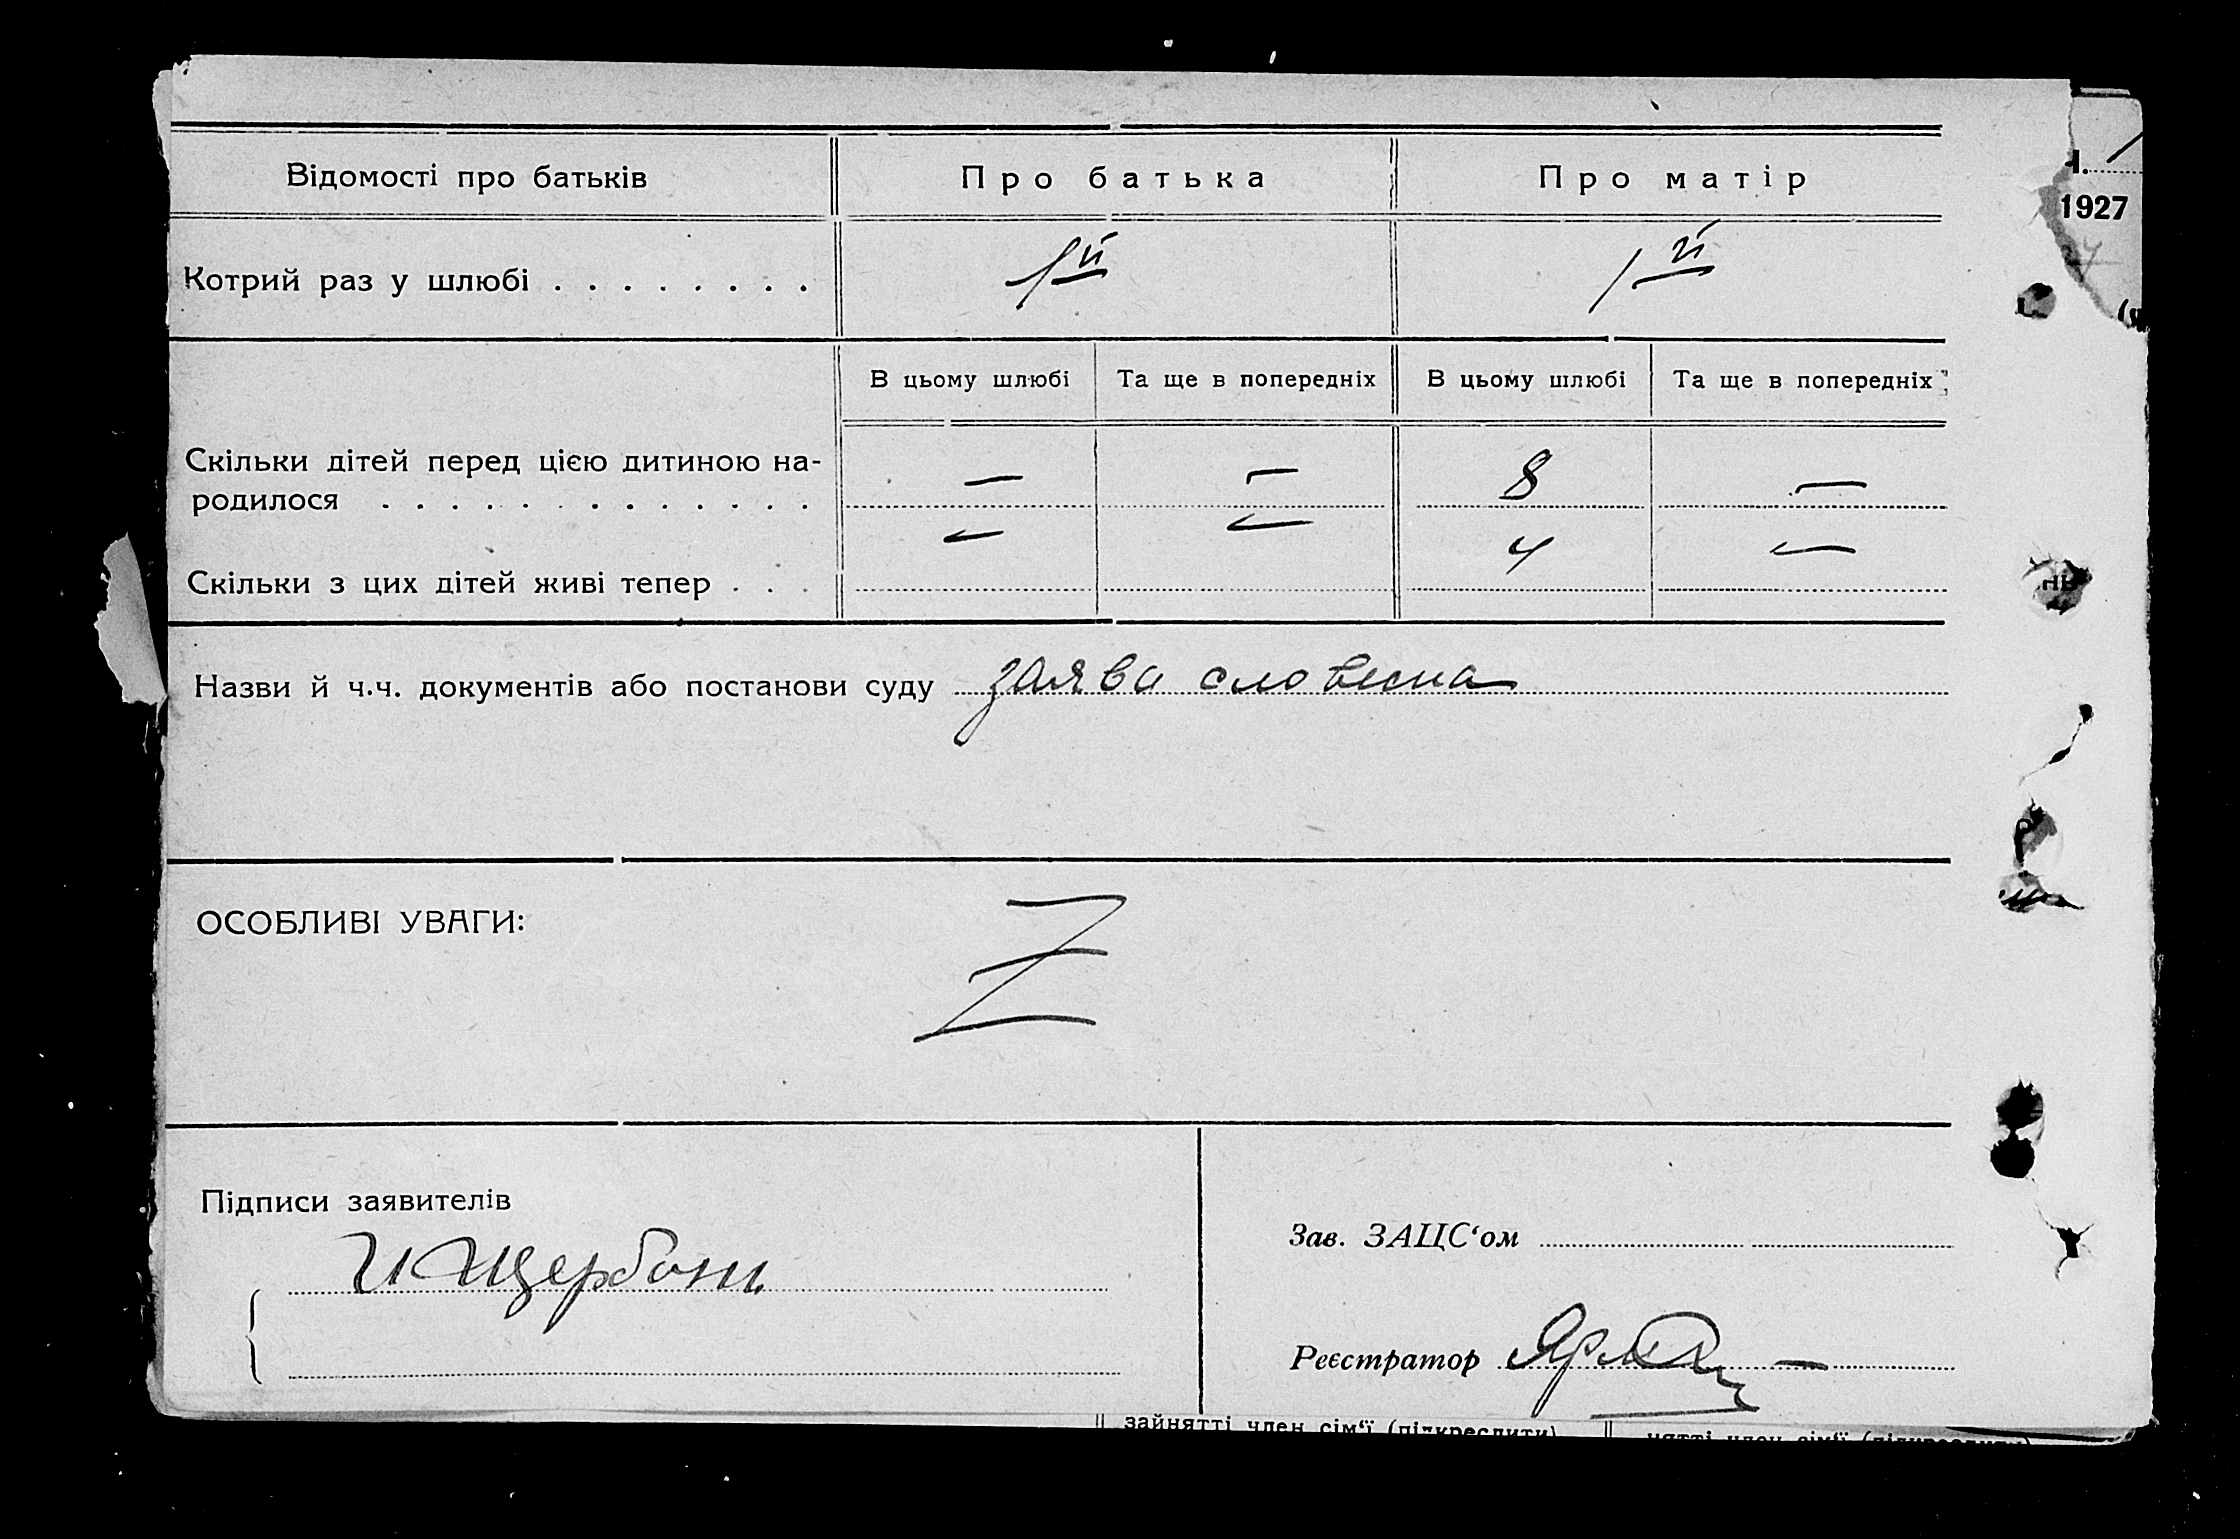 Відомості про батьків Про батька Про матір
1927
Котрий раз у шлюбі . . . . . . . . 1й 1й
В цьому шлюбі Та ще в попередніх В цьому шлюбі Та ще в попередніх
Скільки дітей перед цією дитиною на-
родилося . . . . . . . . . . . . . — — 8 —
Скільки з цих дітей живі тепер . . . — — 4 —
Назви й ч.ч. документів або постанови суду заява словесна
ОСОБЛИВІ УВАГИ:
Z
Підписи заявителів
Зав. ЗАЦС‘ом
И Щербань
Реєстратор
зайнятті член сім‘ї (підкреслити)
нятті член сім‘ї (підкреслити)